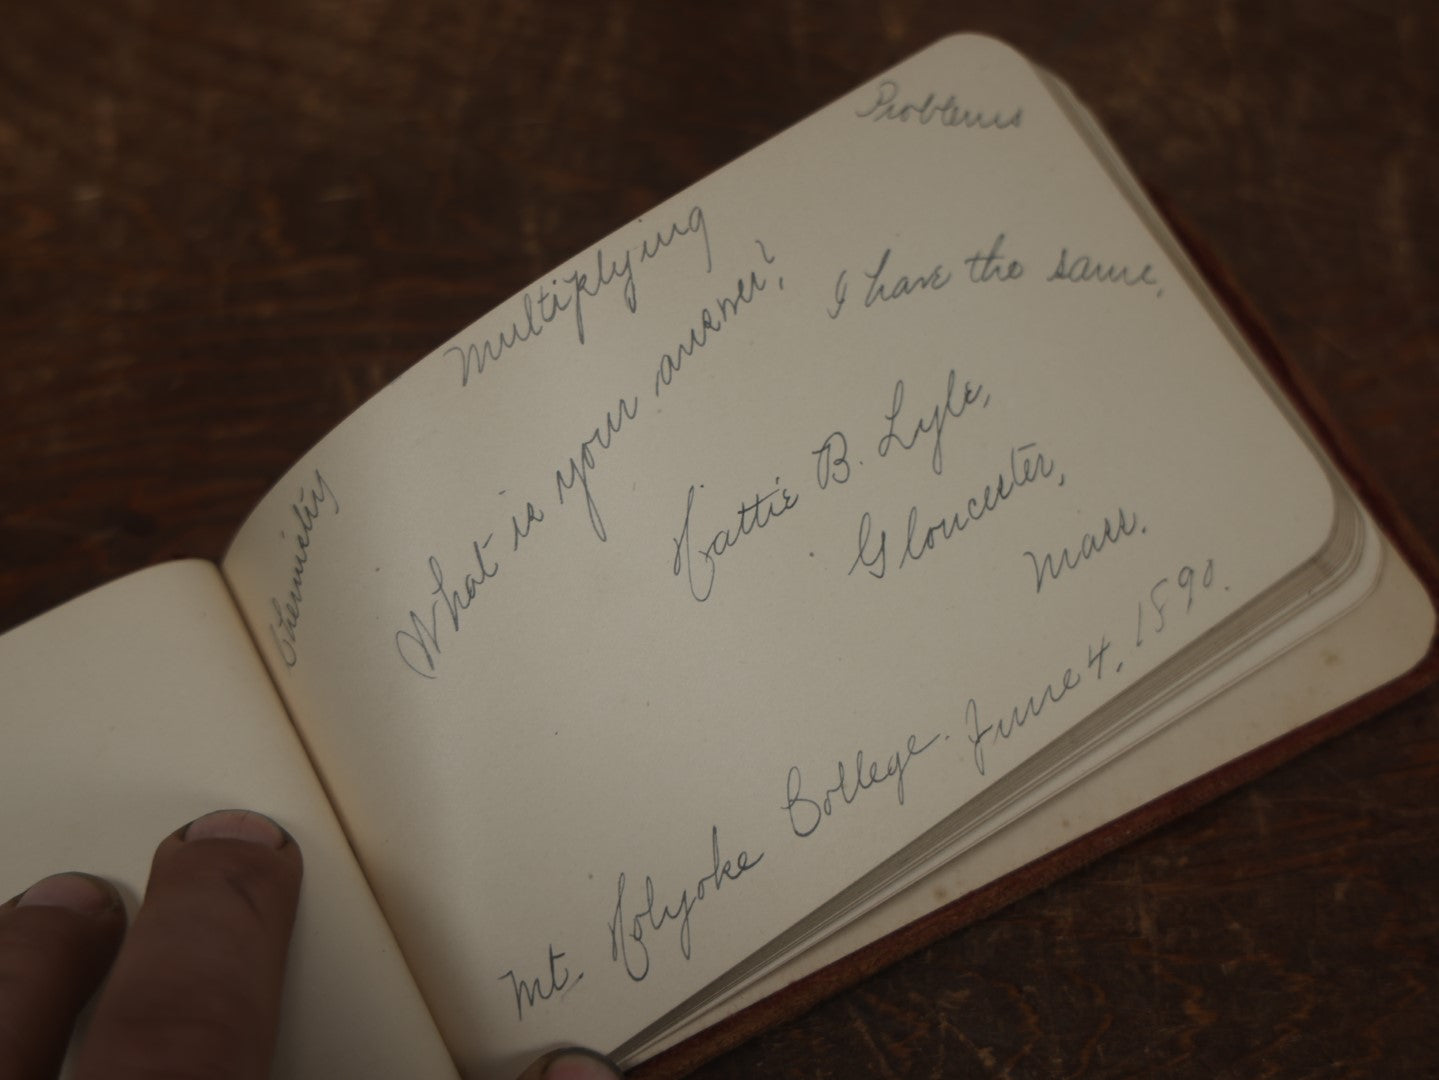 Chemistry
Multiplying
Problems
What is your answer?
I have the same.
Hattie B. Lyle,
Gloucester,
Mass.
Mt. Holyoke College. June 4, 1890.